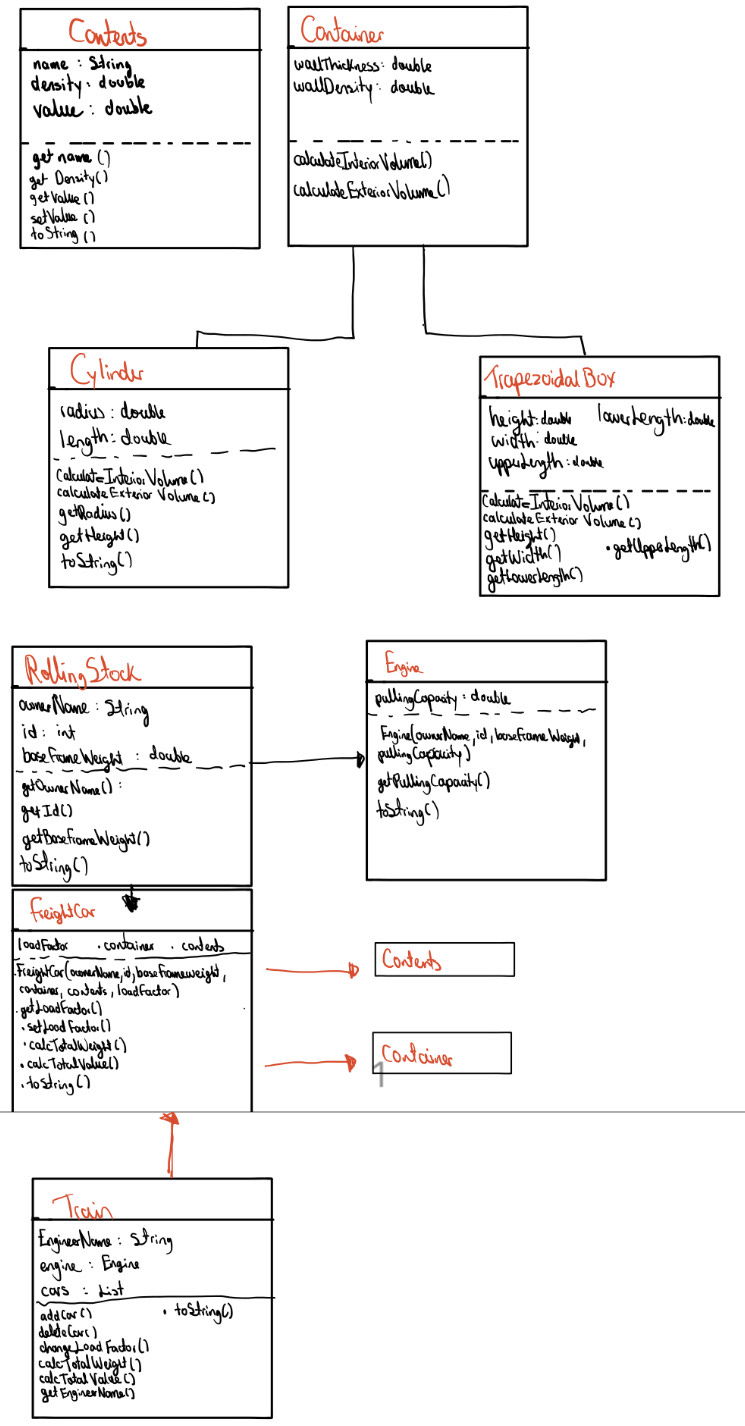 Contents
name : String
density : double
value : double
get name ()
get Density()
getValue ()
setValue ()
toString ()
Container
wallThickness: double
wallDensity : double
calculateInteriorVolume()
calculateExteriorVolume()
Cylinder
radius : double
length : double
CalculateInteriorVolume()
calculateExterior Volume()
getRadius()
getHeight()
toString()
TrapezoidalBox
height: double lowerLength: double
width: double
upperLength : double
CalculateInteriorVolume()
calculateExterior Volume()
getHeight()
getWidth() . getUpperLength()
getLowerLength()
RollingStock
ownerName : String
id : int
baseFrameWeight : double
getOwnerName() :
getId()
getBaseFrameWeight()
toString()
Engine
pullingCapacity : double
Engine(ownerName, id, baseFrameWeight,
pullingCapacity)
getPullingCapacity()
toString()
FreightCar
loadFactor . container . contents
. FreightCar(ownerName, id, baseFrameweight,
container, contents, loadFactor)
. getLoadFactor()
. setLoadFactor()
. calcTotalWeight()
. calcTotalValue()
. toString()
Contents
Container
1
Train
EngineerName : String
engine : Engine
cars : List
addCar() . toString()
deleteCar()
changeLoadFactor()
calcTotalWeight()
calcTotalValue()
getEngineerName()